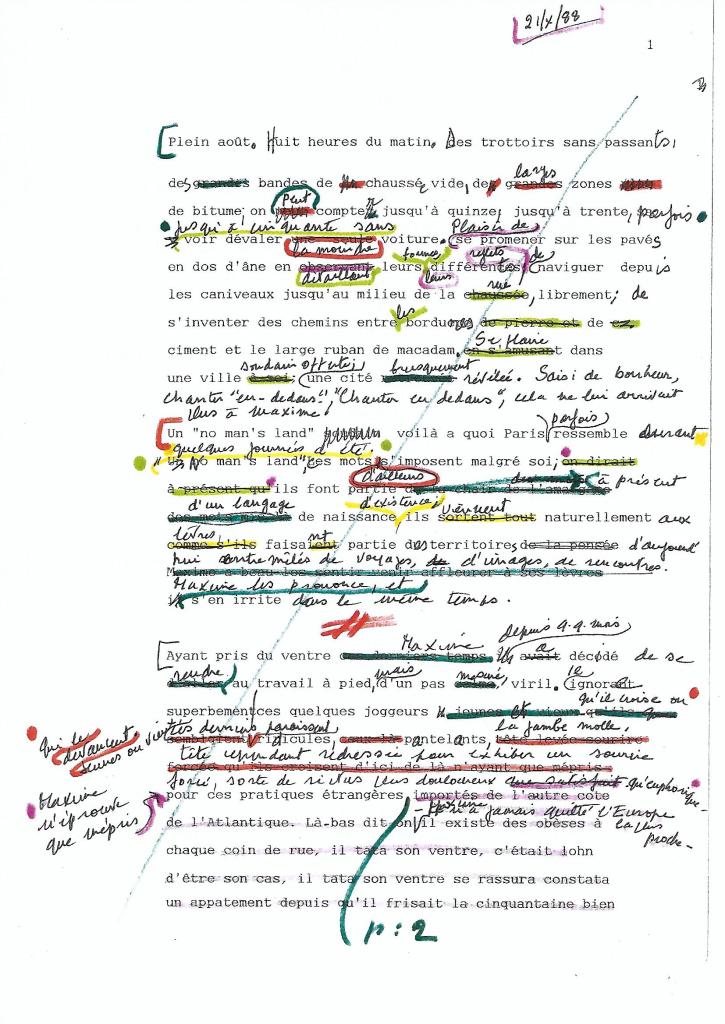 21/X/88
1
Plein août. Huit heures du matin. Des trottoirs sans passants,
larges
des grandes bandes de chaussée vide, de grandes zones
peut
de bitume, on compte jusqu'à quinze, jusqu'à trente, parfois
jusqu'à cinquante sans Plaisir de
voir dévaler une seule voiture. (se promener sur les pavés
la moindre formes, reflets de
en dos d'âne en observant leurs différentes naviguer depuis
détaillant leurs rue
les caniveaux jusqu'au milieu de la chaussée, librement; de
les
s'inventer des chemins entre bordures de pierre et de
Se plaire
ciment et le large ruban de macadam. en s'amusant dans
soudain offerte; brusquement
une ville à soi; une cité révélée. Saisi de bonheur,
chanter "en-dedans", "Chanter en dedans", cela ne lui arrivait
plus à Maxime!
parfois
Un "no man's land" voilà a quoi Paris ressemble durant
quelques journées d'été.
"Un no man's land", ces mots s'imposent malgré soi; on dirait
d'ailleurs
à présent qu'ils font partie de à présent
d'un langage d'existence, viennent
de naissance ils sortent tout naturellement aux
lèvres, nt
comme s'ils faisaient partie des territoires de la pensée d'aujourd'
hui entremêlés de voyages, d'images, de rencontres.
Maxime a beau les sentir venir affleurer à ses lèvres
Maxime les prononce, et
s'en irrite dans le même temps.
depuis q.q. mois
Maxime a
Ayant pris du ventre ces derniers temps avait décidé de se
rendre mais masure le
au travail à pied, d'un pas viril. (ignorant
qu'il croise ou
superbement ces quelques joggeurs jeunes et vieux qu'ils
qui le devancent. Jeunes ou vieux ces derniers paraissent la jambe molle.
semblent ridicules, pantelants, tête levée sourire
tête cependant redressée pour exhiber un sourire
forcé qu'ils croisent d'ici de là n'ayant que mépris
forcé, sorte de rictus plus douloureux que satisfait qu'euphorique-
Maxime n'éprouve que mépris
pour ces pratiques étrangères importés de l'autre coté
n'a jamais quitté l'Europe
de l'Atlantique. Là-bas dit on, il existe des obèses à
la plus proche-
chaque coin de rue, il tata son ventre, c'était lohn
d'être son cas, il tata son ventre se rassura constata
un appatement depuis qu'il frisait la cinquantaine bien
p: 2